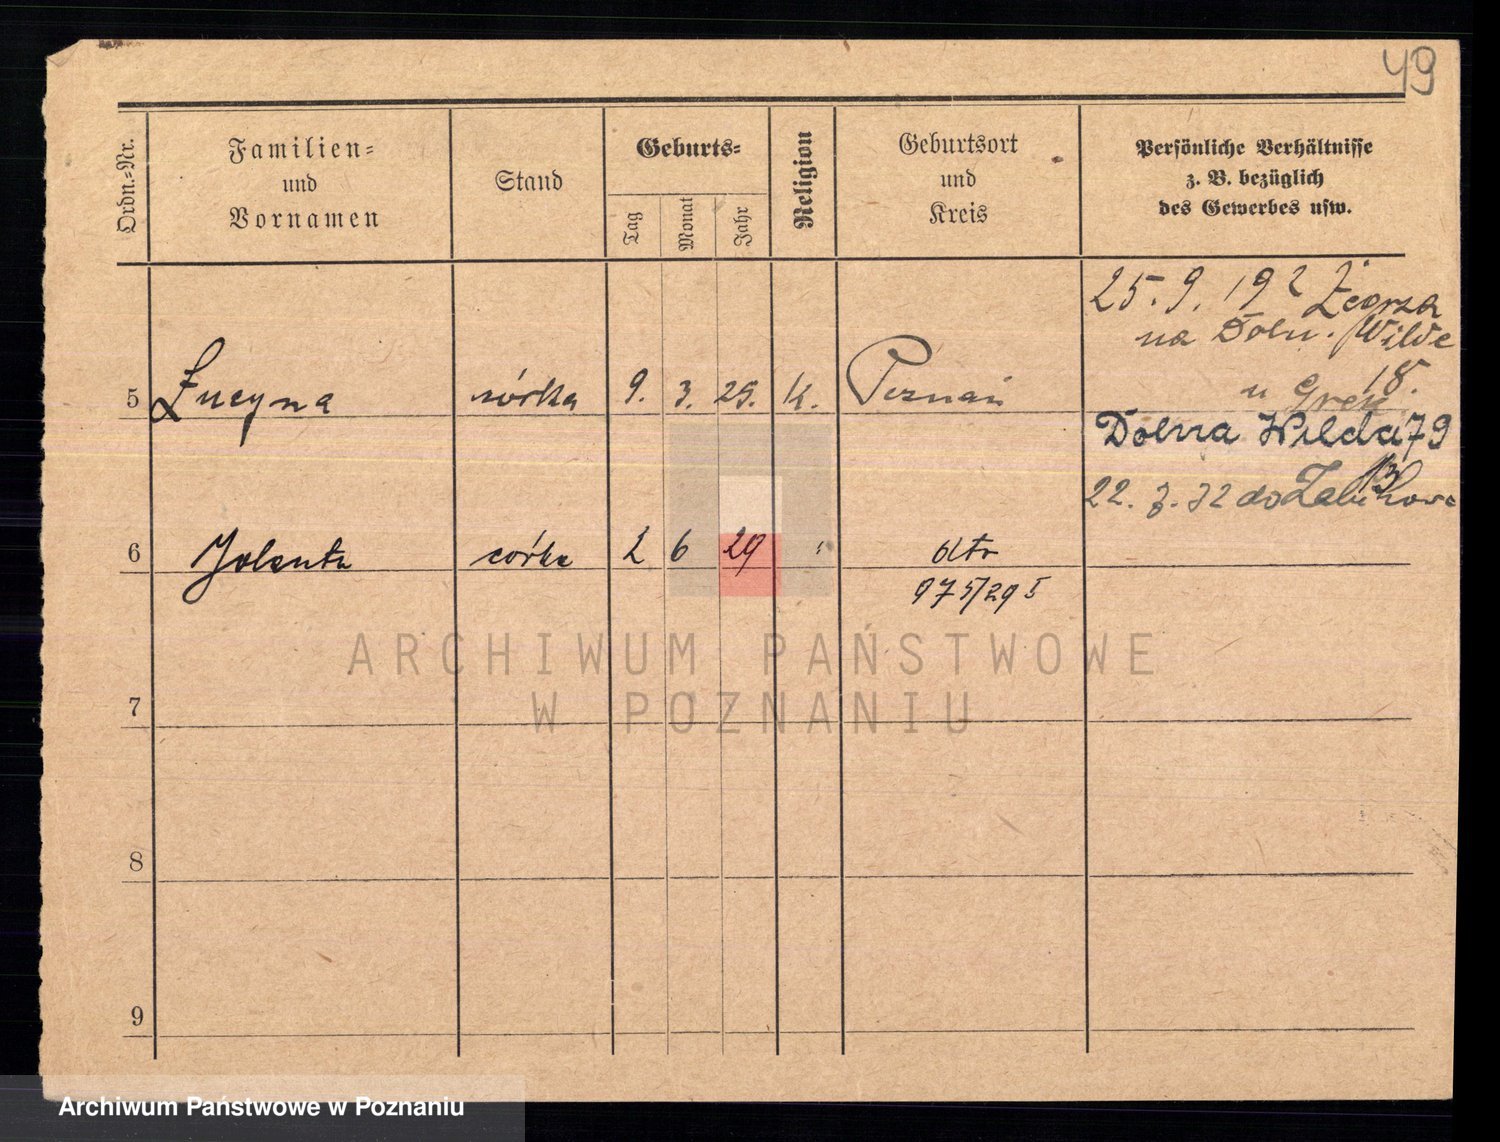 49
Ordn.-Nr.
Familien-
und
Vornamen
Stand
Geburts-
Tag
Monat
Jahr
Religion
Geburtsort
und
Kreis
Persönliche Verhältnisse
z. B. bezüglich
des Gewerbes usw.
25. 9. 192
na Doln. Wilde
18.
5 Lucyna córka 9. 3. 25. K. Poznań
u
Dolna Wilda 79
22. 7. 32 do Zabikowa
6 Jolenta córka 2 6 29
975/29 I
7
8
9
ARCHIWUM PAŃSTWOWE
W POZNANIU
Archiwum Państwowe w Poznaniu